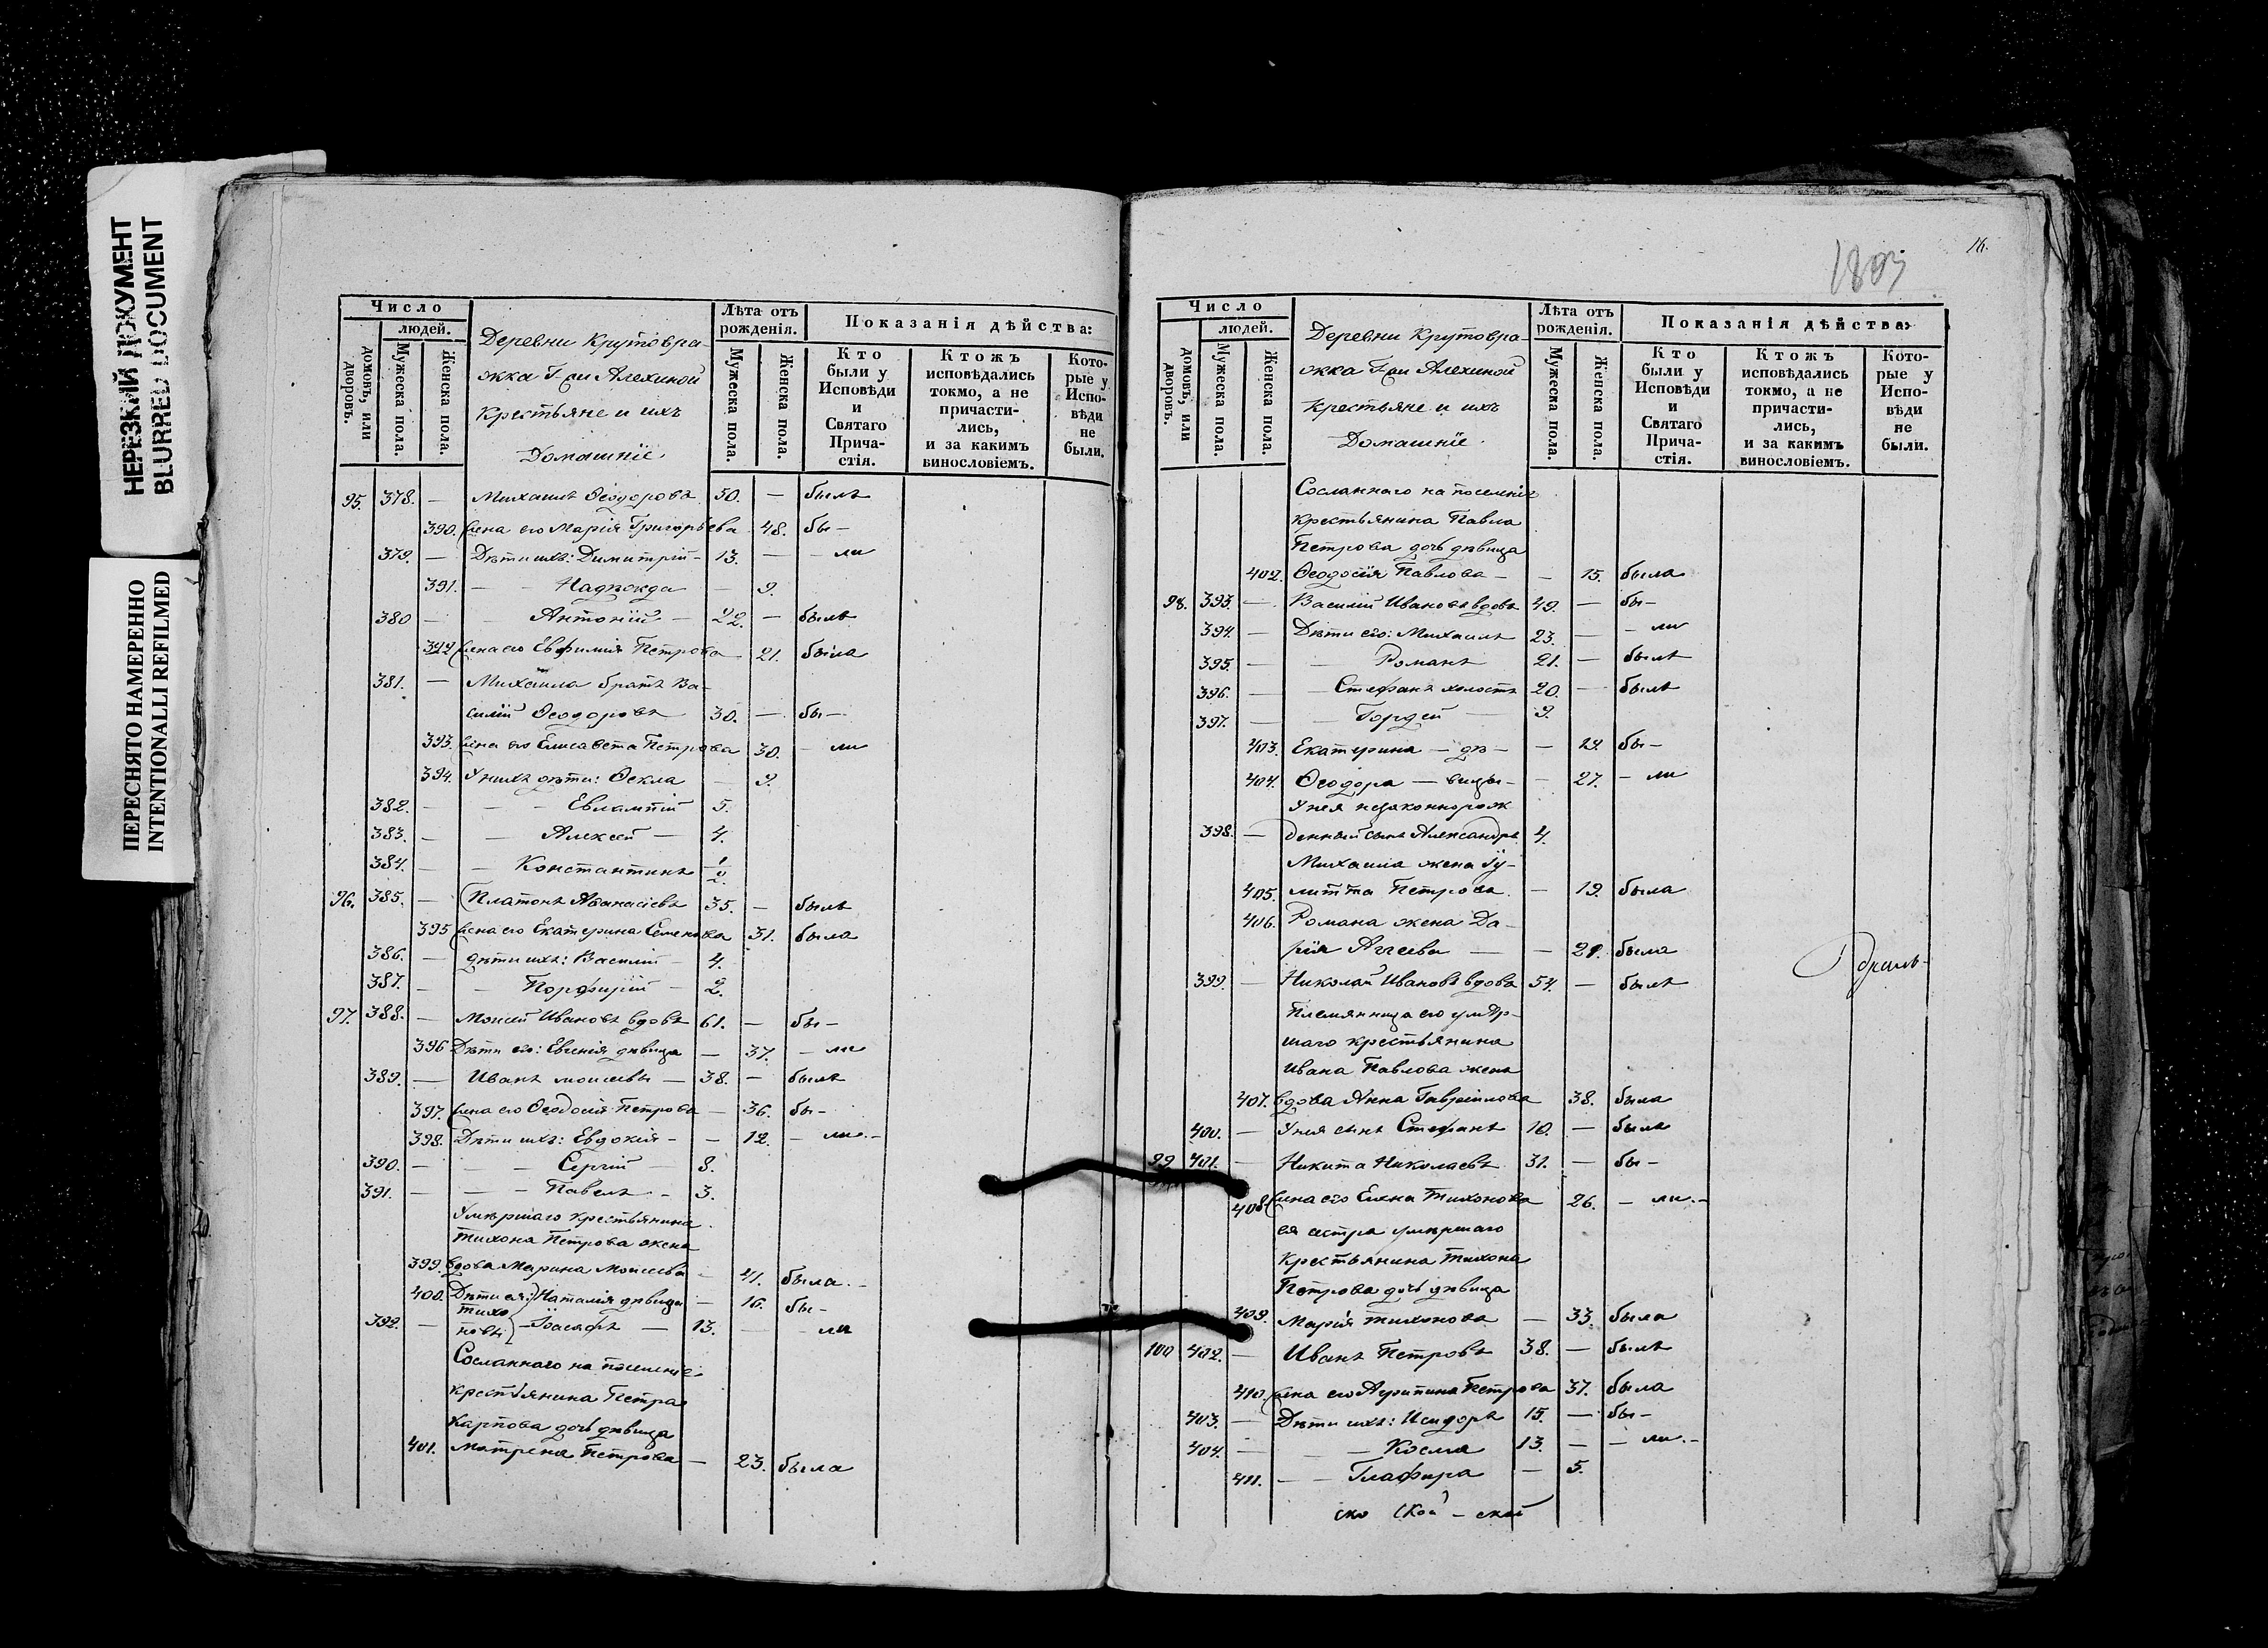 НЕРЕЗКИЙ ДОКУМЕНТ
BLURRED DOCUMENT
ПЕРЕСНЯТО НАМЕРЕННО
INTENTIONALLI REFILMED
Число
людей.
домовъ, или дворовъ.
Мужеска пола.
Женска пола.
Деревни Крутовра-
жка Г-жи Алехиной
Крестьяне и ихъ
Домашніе
Лѣта отъ рожденія.
Мужеска пола.
Женска пола.
Показанія дѣйства:
Кто были у Исповѣди и Святаго Прича-стія.
Ктожъ исповѣдались токмо, а не причасти-лись, и за какимъ винословіемъ.
Кото-рые у Испо-вѣди не были.
95. 378. — Михаилъ Ѳеодоровъ 50. — былъ
390. Жена его Марія Григорьева 48. бы-
379. — Дѣти ихъ: Димитрій - 13. — - ли
391. — — Надѣжда — 9.
380 — — Антоній — 22. — былъ
392 Жена его Евфимія Петрова 21. была
381. — Михаила братъ Ва-
силій Ѳеодоровъ 30. — бы-
393. Жена его Елисавета Петрова 30. - ли
394. У нихъ дѣти: Ѳекла — 9.
382. — — — Евлампій 5.
383. — — Алексѣй — 4.
384. — — Константинъ 1/2.
96. 385. — Платонъ Аѳанасіевъ 35. — былъ
395 Жена его Екатерина Семенова 31. была
386. — дѣти ихъ: Василій — 4.
387. — — Порфирій — 2.
97. 388. — Моисей Ивановъ вдовъ 61. — бы-
396 Дѣти его: Евгенія дѣвица — 37. - ли
389. — Иванъ Моисеевъ — 38. — былъ
397. Жена его Ѳеодосія Петрова — 36. бы-
398. Дѣти ихъ: Евдокія - — 12. - ли.-
390. — — — Сергій — 8.
391. — — — Павелъ — 3.
Умершаго крестьянина
Тихона Петрова жена
399. вдова Марина Моисеева — 41. была.-
400. Дѣти ея: Наталія дѣвица — 16. бы-
Тихо
392. — новы — Іоасафъ — 13. — - ли
Сосланнаго на поселеніе
крестьянина Петра
Карпова дочь дѣвица
401. Матрена Петрова — 23. была
1803
16.
Число
людей.
домовъ, или дворовъ.
Мужеска пола.
Женска пола.
Деревни Крутовра-
жка Г-жи Алехиной
Крестьяне и ихъ
Домашніе
Лѣта отъ рожденія.
Мужеска пола.
Женска пола.
Показанія дѣйства:
Кто были у Исповѣди и Святаго Прича-стія.
Ктожъ исповѣдались токмо, а не причасти-лись, и за какимъ винословіемъ.
Кото-рые у Испо-вѣди не были.
Сосланнаго на поселеніе
крестьянина Павла
Петрова дочь дѣвица
402. Ѳеодосія Павлова — — 15. была
98. 393. — Василій Ивановъ вдовъ 49. — бы-
394. — Дѣти его: Михаилъ 23. — - ли
395. — — Романъ 21. — былъ
396. — — Стефанъ холостъ 20. — былъ
397. — — Гордей — 9.
403. Екатерина — дѣ — — 29. бы-
404. Ѳеодора — вицы — — 27. - ли
У нея незаконнорож
398. — денный сынъ Александръ 4.
Михаила жена Іу-
405. литта Петрова — 19. была
406. Романа жена Да-
рія Аггеева — — 21. была
399. — Николай Ивановъ вдовъ 54. — былъ
Племянница его умер-
шаго крестьянина
Ивана Павлова жена
407. вдова Анна Гавріилова 38. была
400. — У нея сынъ Стефанъ 10. — былъ
99 401. — Никита Николаевъ 31. — бы-
408. Жена его Елена Тихонова 26. - ли.-
ея сестра умершаго
крестьянина Тихона
Петрова дочь дѣвица
409. Марія Тихонова — 33. была
100 402. — Иванъ Петровъ 38. — былъ
410. Жена его Агрипина Петрова 37. была
403. — Дѣти ихъ: Исидоръ 15. — бы-
404. — — Косма 13. — - ли.-
411. — — Глафира — 5.